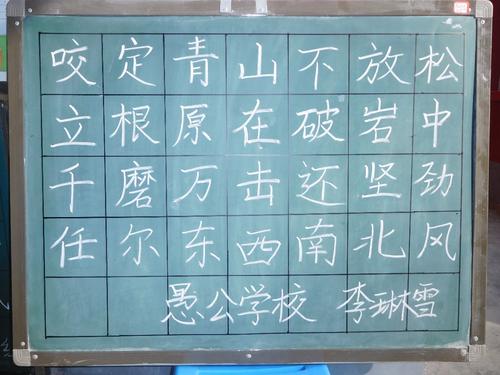 咬定青山不放松
立根原在破岩中
千磨万击还坚劲
任尔东西南北风
愚公学校 李琳雪